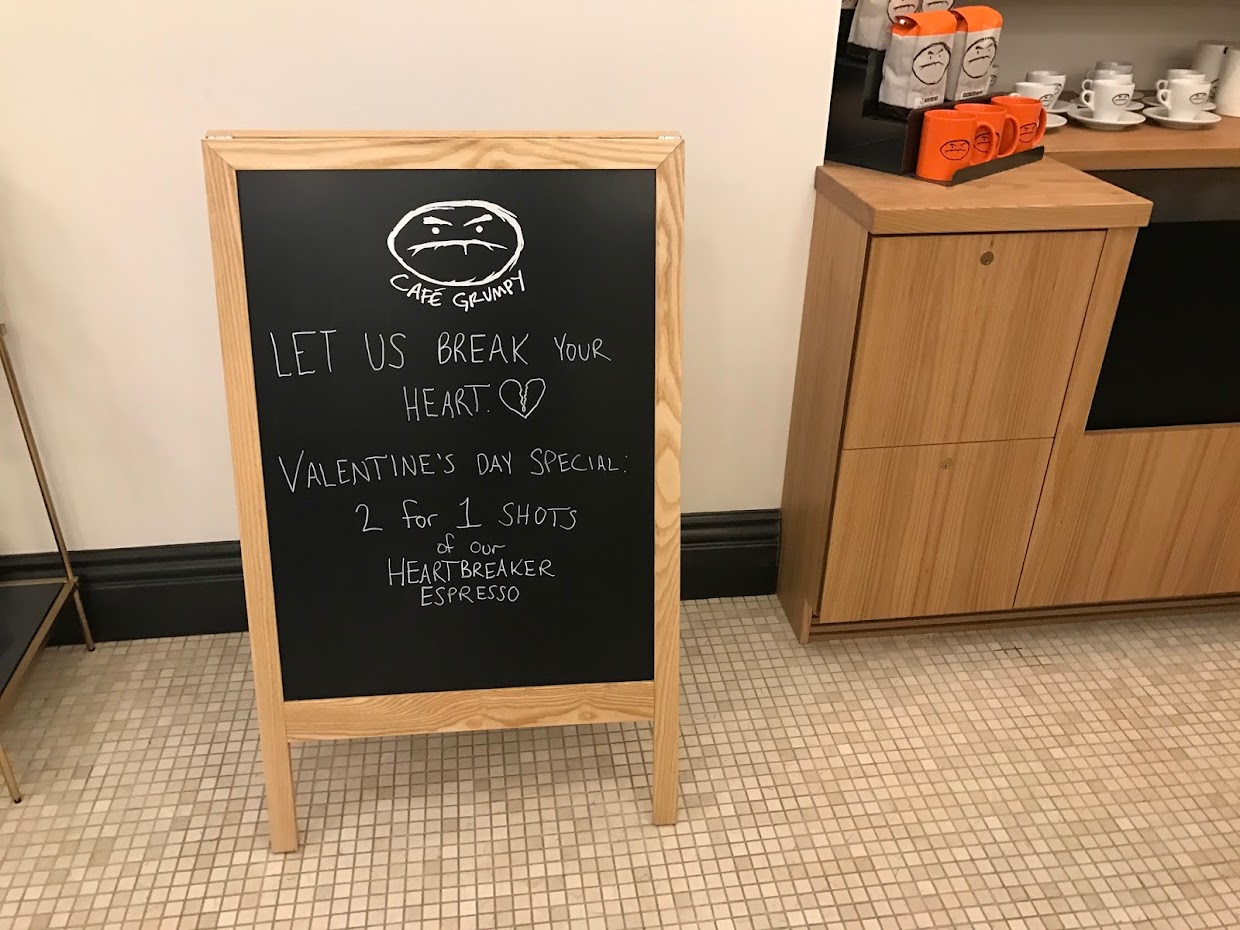 CAFÉ GRUMPY
LET US BREAK YOUR
HEART.
VALENTINE'S DAY SPECIAL:
2 for 1 SHOTS
of our
HEARTBREAKER
ESPRESSO